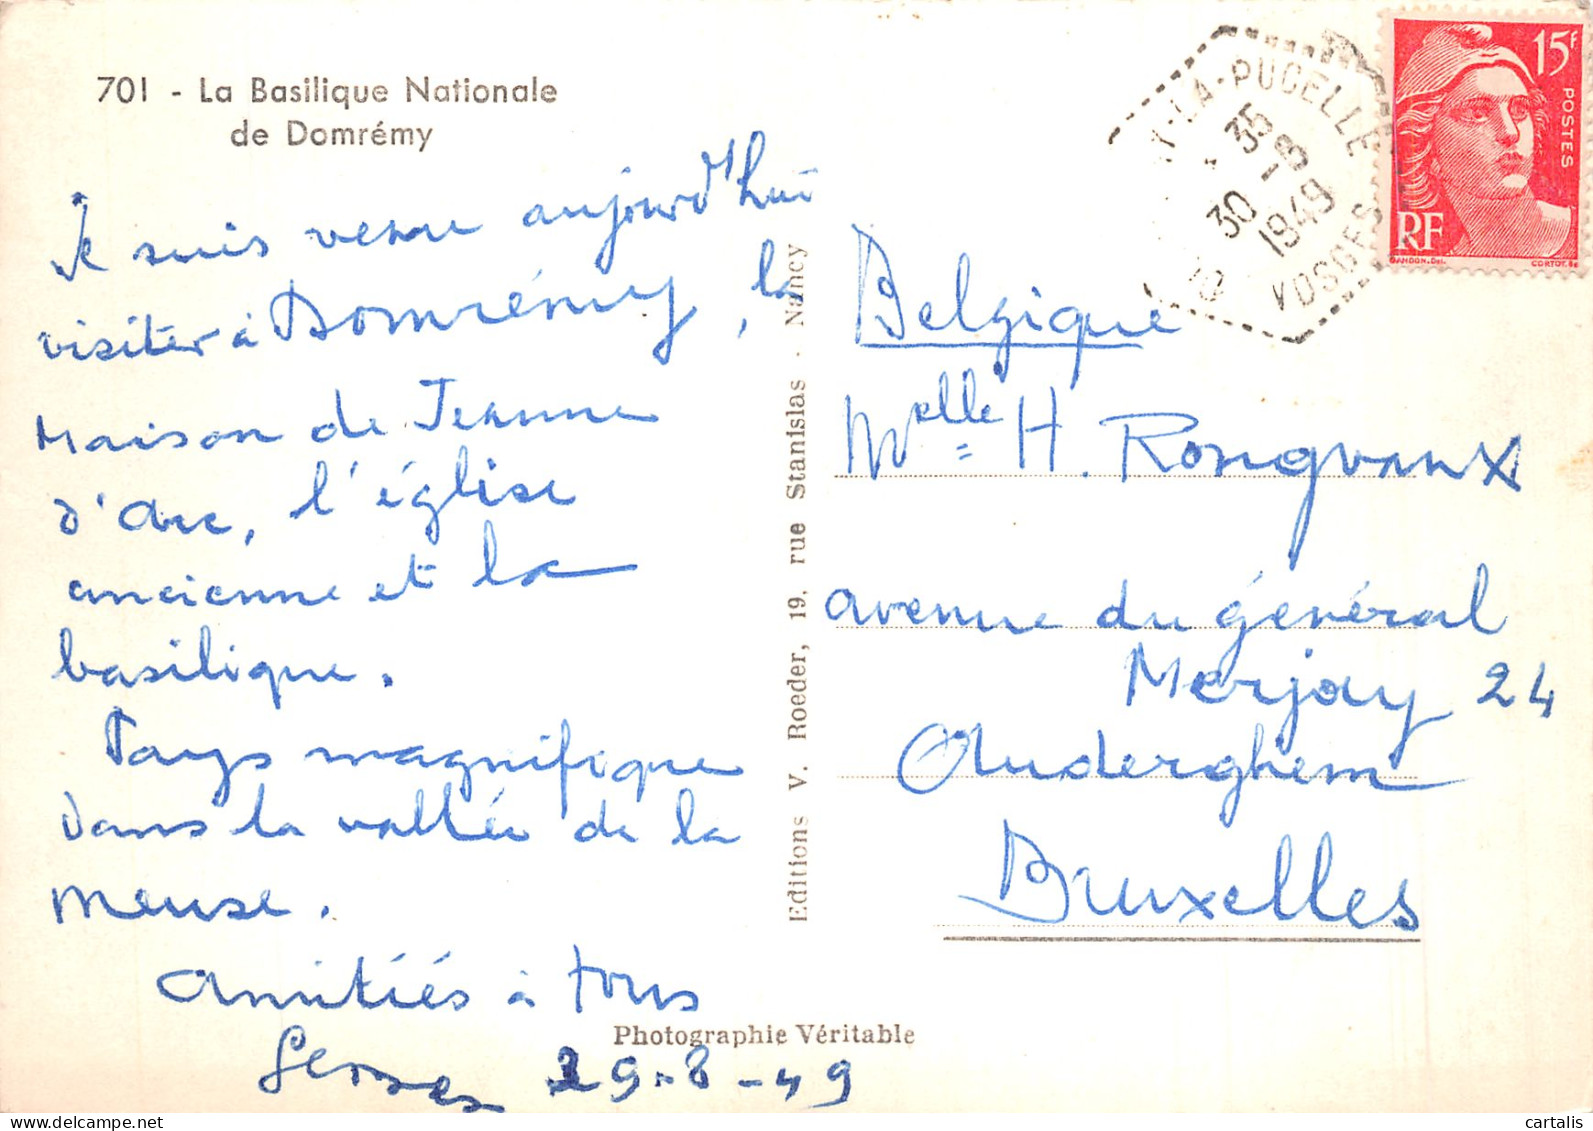 701 - La Basilique Nationale
de Domrémy
Je suis venu aujourd'hui
visiter à Domrémy, la
Maison de Jeanne
d'Arc, l'église
ancienne et la
basilique.
Pays magnifique
dans la vallée de la
Meuse.
Amitiés à tous
29-8-49
Editions V. Roeder, 19, rue Stanislas - Nancy
Photographie Véritable
Y-LA-PUCELLE
35
30 -8
1949
VOSGES
15F
POSTES
RF
GANDON.Del.
CORTOT.Sc
Belgique
Melle H. Rongvaux
avenue du général
Merjay 24
Auderghem
Bruxelles
cartalis
delcampe.net